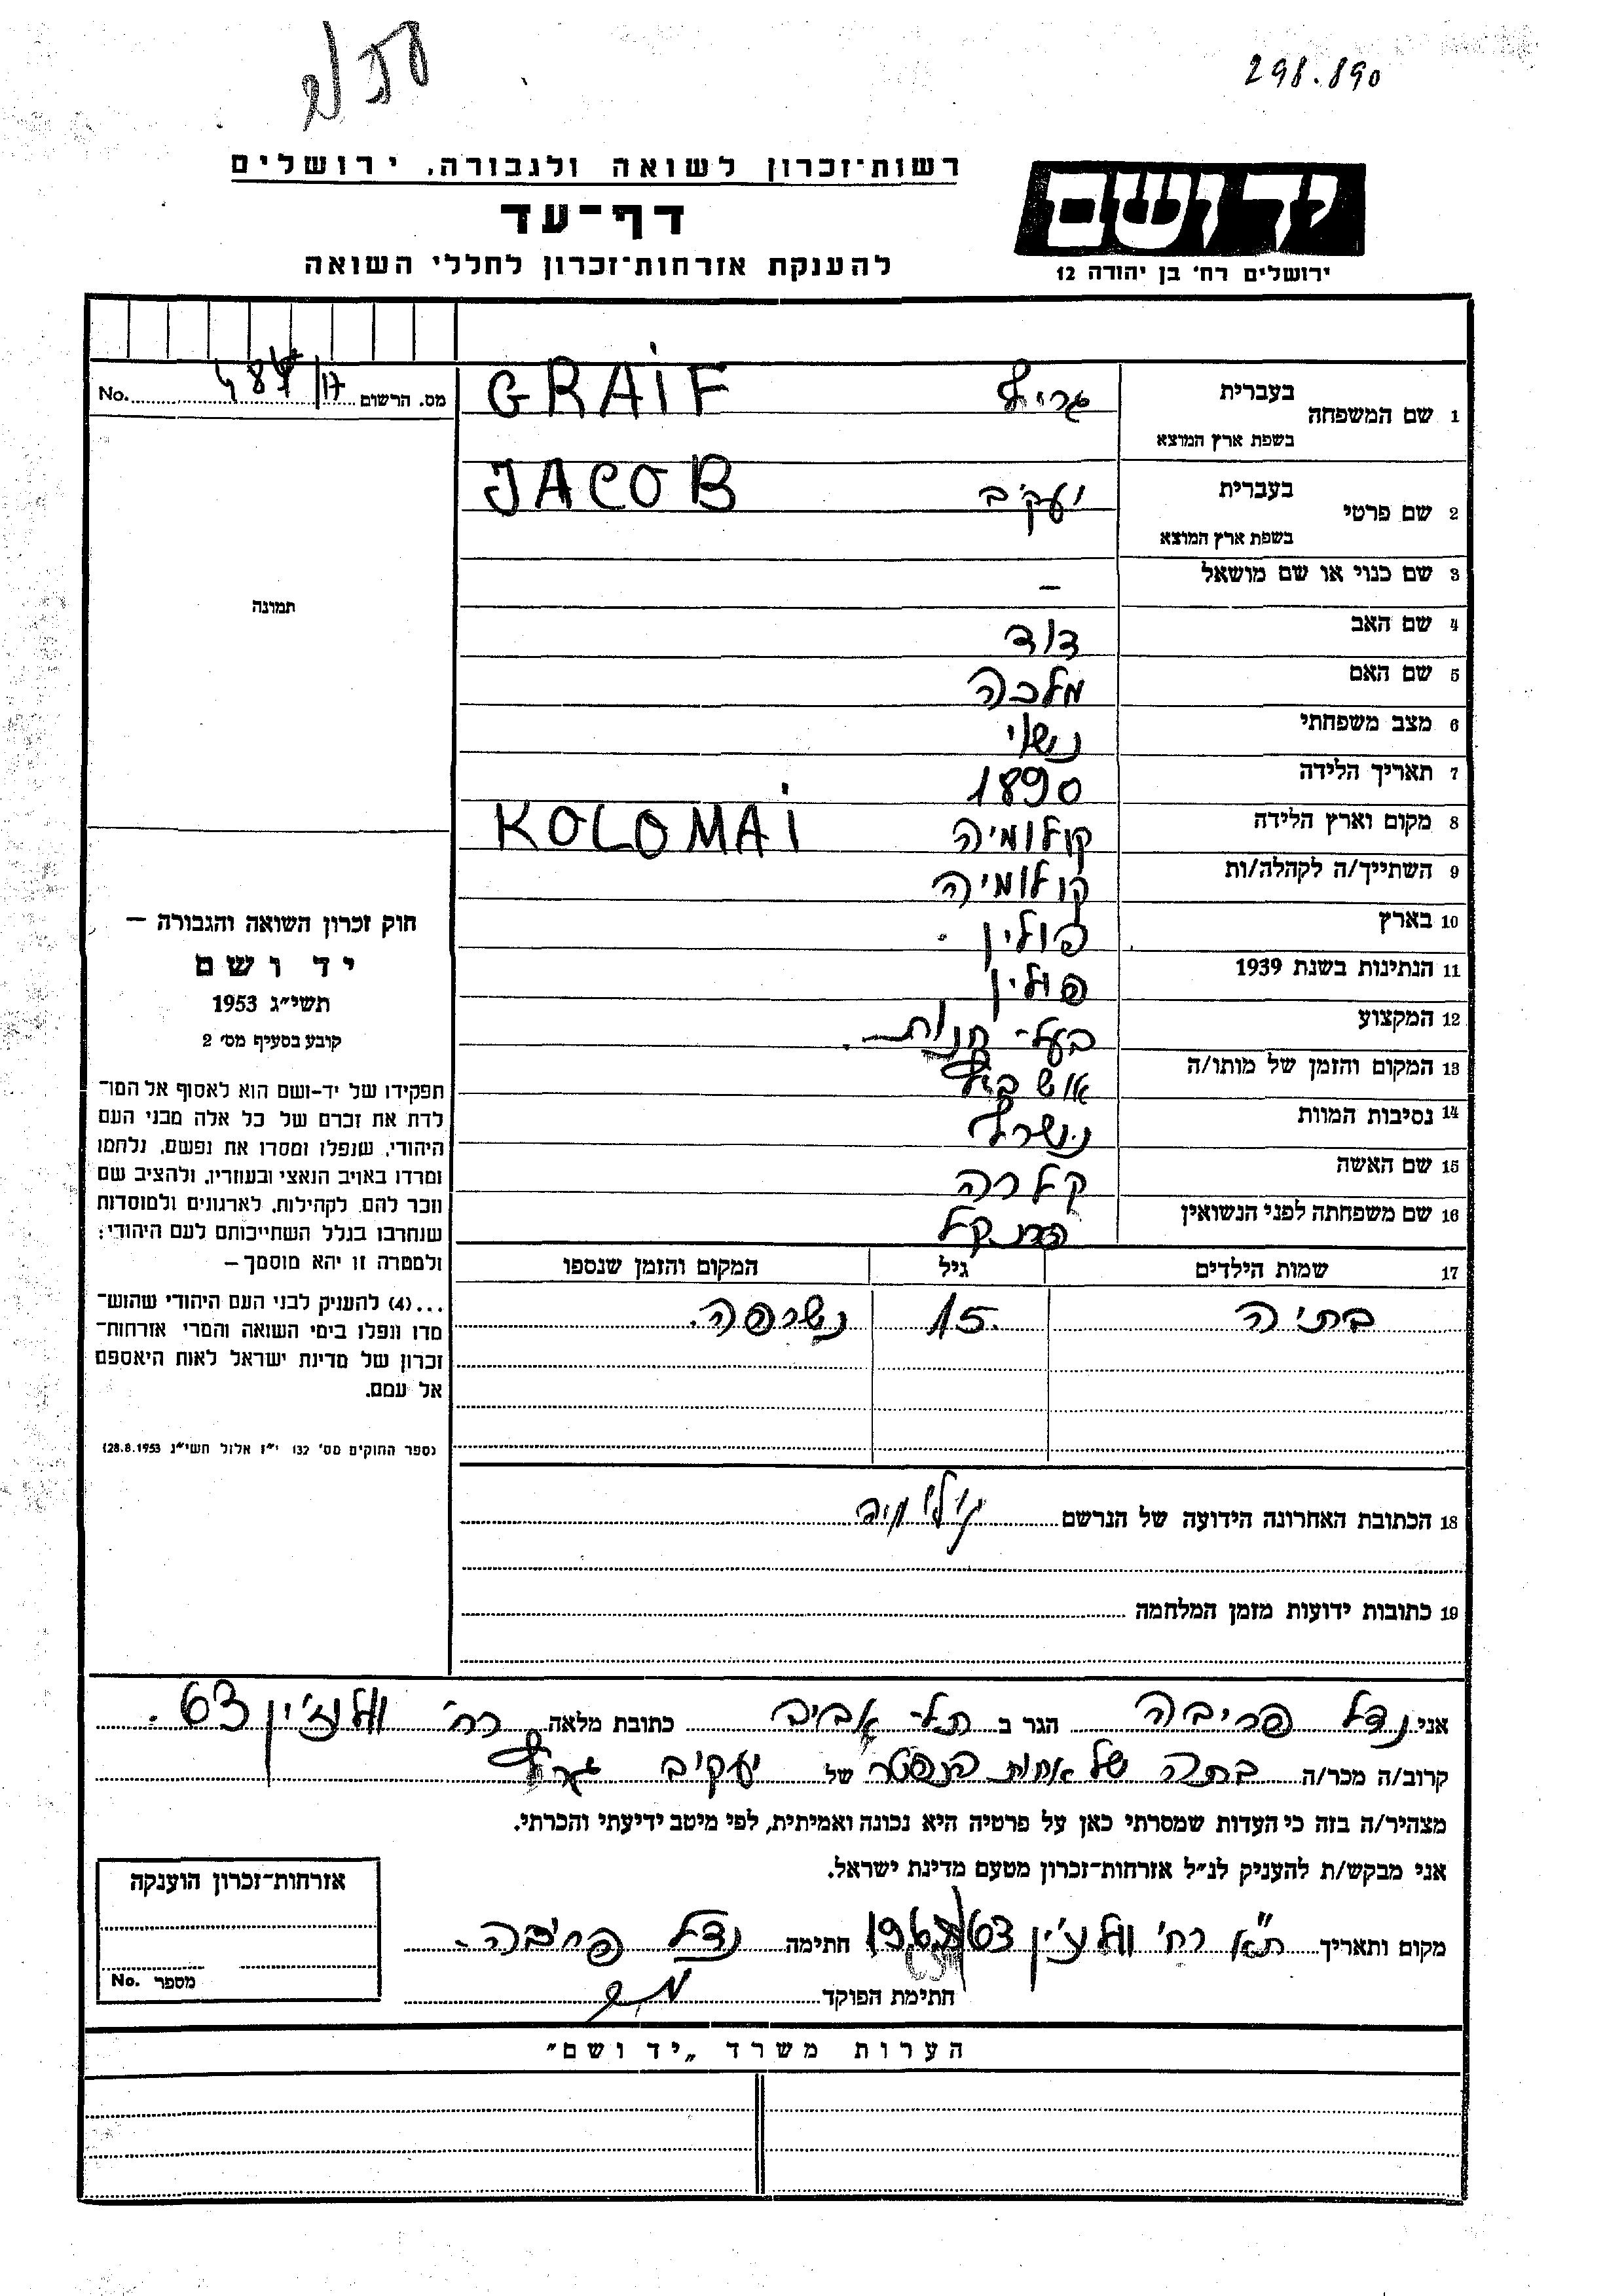 298.890
רשות־זכרון לשואה ולגבורה, ירושלים
דף־עד
להענקת אזרחות־זכרון לחללי השואה
יד ושם
ירושלים רח' בן יהודה 12
מס. הרשום 17/ No.
1 שם המשפחה בעברית גרייף GRAIF
בשפת ארץ המוצא
2 שם פרטי בעברית יעקב JACOB
בשפת ארץ המוצא
3 שם כנוי או שם מושאל –
תמונה
4 שם האב דוד
5 שם האם מלכה
6 מצב משפחתי נשוי
7 תאריך הלידה 1890
8 מקום וארץ הלידה קולומיה KOLOMAI
9 השתייך/ה לקהלה/ות קולומיה
10 בארץ פולין.
11 הנתינות בשנת 1939 פולין
12 המקצוע בעל-חנות.
13 המקום והזמן של מותו/ה
14 נסיבות המוות נשרף
15 שם האשה קלרה
16 שם משפחתה לפני הנשואין
17 שמות הילדים גיל המקום והזמן שנספו
בתיה 15 נשרפה.
18 הכתובת האחרונה הידועה של הנרשם קולומיה
19 כתובות ידועות מזמן המלחמה
חוק זכרון השואה והגבורה –
יד ושם
תשי״ג 1953
קובע בסעיף מס׳ 2
תפקידו של יד-ושם הוא לאסוף אל המו־
לדת את זכרם של כל אלה מבני העם
היהודי, שנפלו ומסרו את נפשם, נלחמו
ומרדו באויב הנאצי ובעוזריו, ולהציב שם
וזכר להם, לקהילות, לארגונים ולמוסדות
שנחרבו בגלל השתייכותם לעם היהודי;
ולמטרה זו יהא מוסמך –
...(4) להעניק לבני העם היהודי שהוש־
מדו ונפלו בימי השואה והמרי אזרחות־
זכרון של מדינת ישראל לאות היאספם
אל עמם.
(ספר החוקים מס׳ 132 י״ז אלול תשי״ג 28.8.1953)
אני נדל פריבה הגר ב תל-אביב כתובת מלאה רח' וולוז'ין 63.
קרוב/ה מכר/ה בתה של אחות הנפטר של יעקב גרייף
מצהיר/ה בזה כי העדות שמסרתי כאן על פרטיה היא נכונה ואמיתית, לפי מיטב ידיעתי והכרתי.
אני מבקש/ת להעניק לנ״ל אזרחות־זכרון מטעם מדינת ישראל.
מקום ותאריך ת״א רח' וולוז'ין 63 חתימה נדל פריבה.
חתימת הפוקד
אזרחות־זכרון הוענקה
מספר No.
הערות משרד „יד ושם״